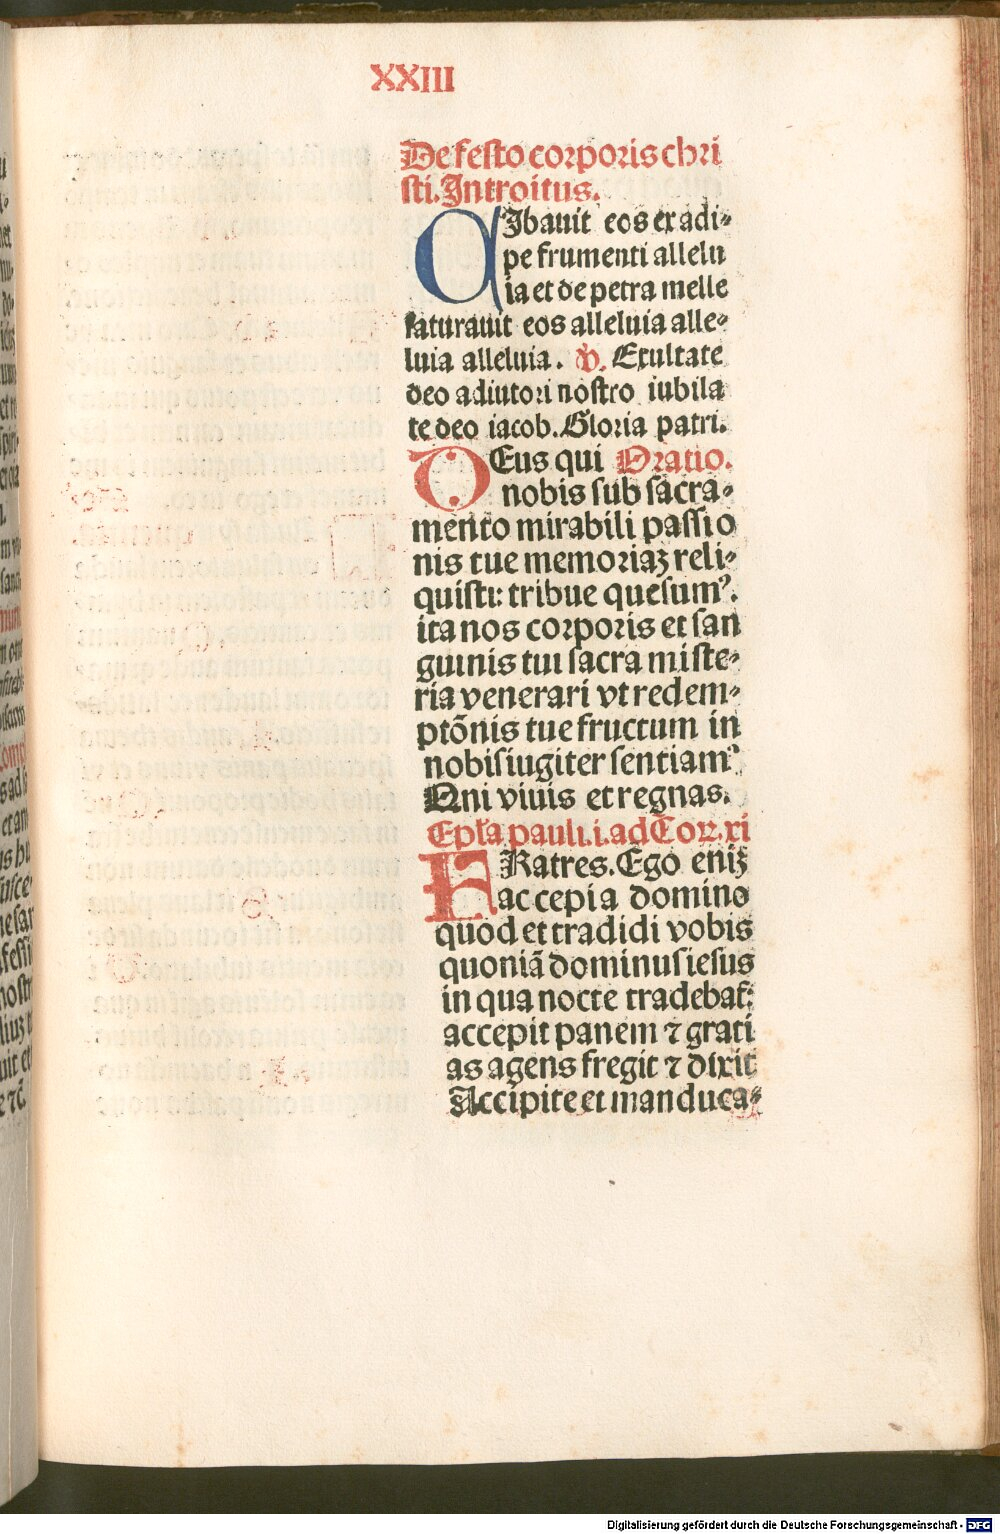 XXIII
De festo corporis chri
sti. Introitus.
CIbauit eos ex adi-
pe frumenti allelu
ia et de petra melle
saturauit eos alleluia alle-
luia alleluia. ℣. Exultate
deo adiutori nostro iubila
te deo iacob. Gloria patri.
DEus qui Oratio.
nobis sub sacra-
mento mirabili passio
nis tue memoriaꝫ reli-
quisti: tribue quesumꝰ.
ita nos corporis et san
guinis tui sacra miste-
ria venerari vt redem-
ptōnis tue fructum in
nobis iugiter sentiamꝰ.
Qni viuis et regnas.
Epła pauli. i. ad Cor. xi
FRatres. Ego eniꝫ
accepi a domino
quod et tradidi vobis
quoniā dominus iesus
in qua nocte tradebat̄:
accepit panem ⁊ grati
as agens fregit ⁊ dixit
Accipite et manduca-
Digitalisierung gefördert durch die Deutsche Forschungsgemeinschaft - DFG